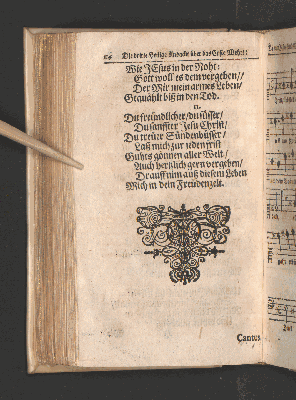 Die dritte Heilige Andacht über das Erste Wohrt:
Wie JEsus in der Noht:
Gott woll es dem vergeben//
Der Mir mein armes Leben/
Gequählt biß in den Tod.
11.
Du freundlicher/ du süsser/
Du sanffter Jesu Christ/
Du treuer Sündenbüsser/
Laß mich zur jeden frist
Guhts gönnen aller Welt/
Auch hertzlich gern vergeben/
Drauff nim auß diesem Leben
Mich in dein Freudenzelt.
Cantus